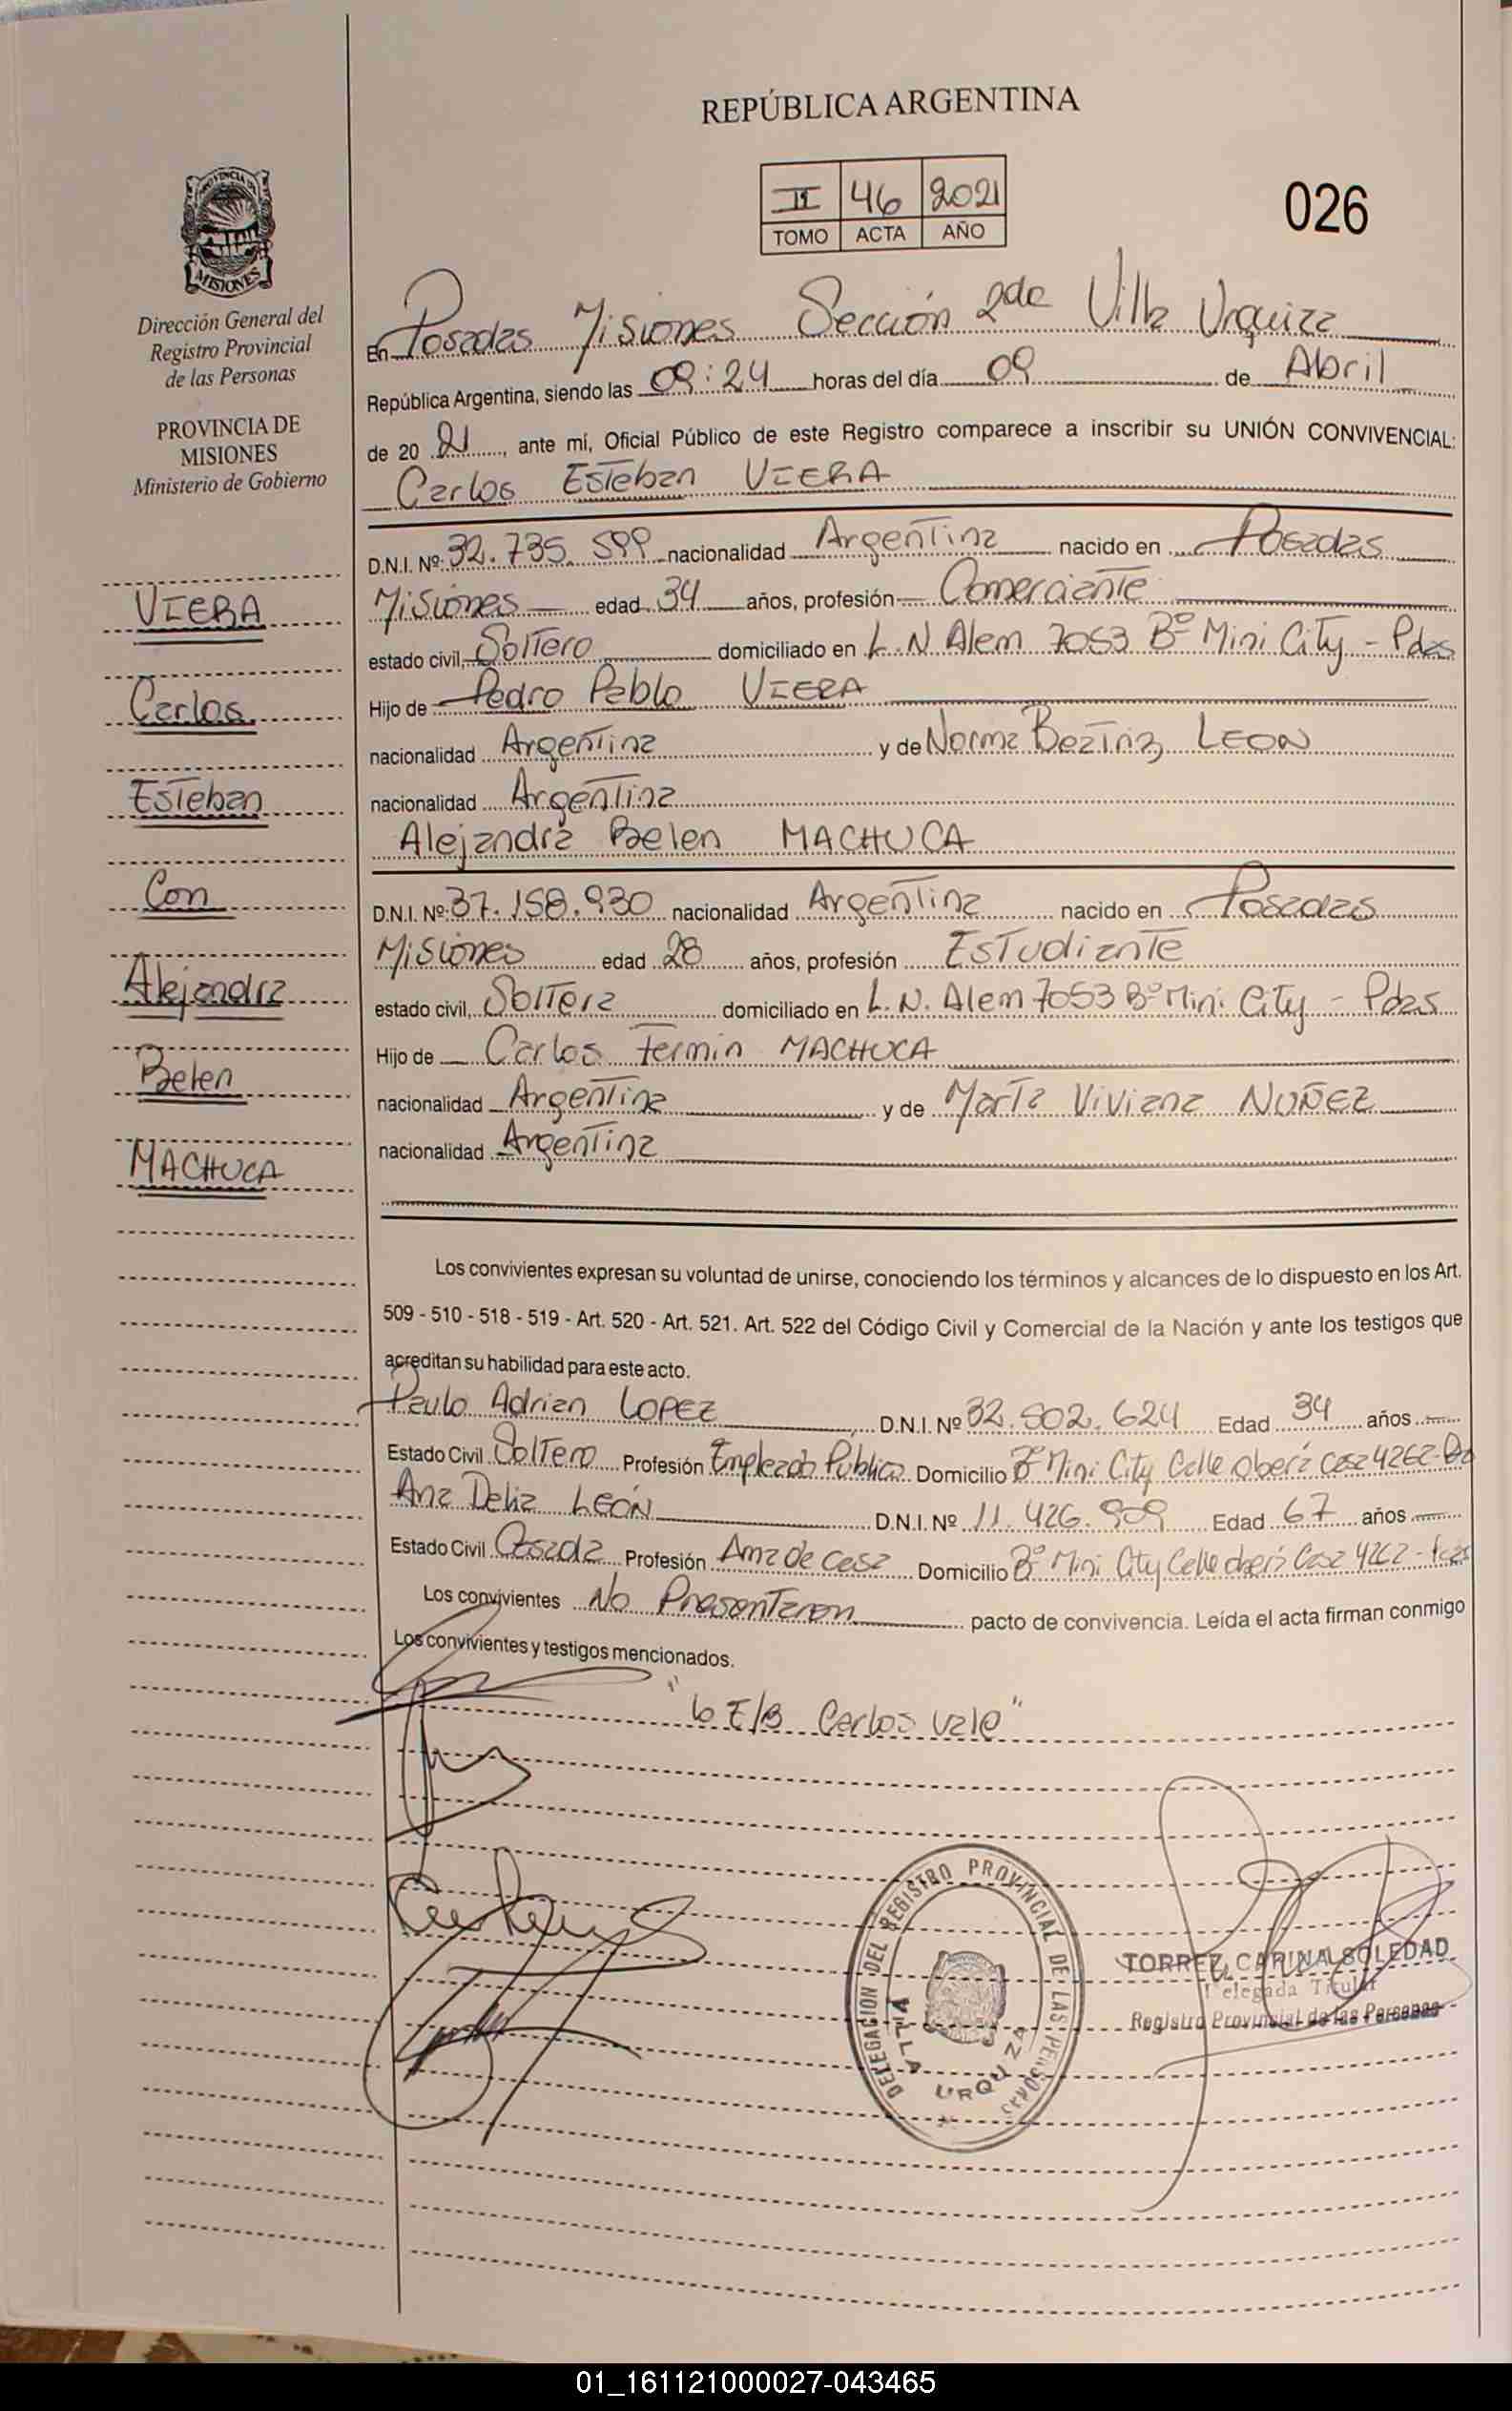 REPÚBLICA ARGENTINA
II 46 2021
TOMO ACTA AÑO
026
PROVINCIA DE
MISIONES
Dirección General del
Registro Provincial
de las Personas
PROVINCIA DE
MISIONES
Ministerio de Gobierno
VIERA
Carlos
Esteban
Con
Alejandra
Belen
MACHUCA
En Posadas Misiones Sección 2da Villa Urquiza
República Argentina, siendo las 09:24 horas del día 09 de Abril
de 20 21, ante mí, Oficial Público de este Registro comparece a inscribir su UNIÓN CONVIVENCIAL:
Carlos Esteban VIERA
D.N.I. Nº 32.735.599 nacionalidad Argentina nacido en Posadas
Misiones edad 34 años, profesión Comerciante
estado civil, Soltero domiciliado en L.N Alem 7053 Bº Mini City - Pdas
Hijo de Pedro Pablo VIERA
nacionalidad Argentina y de Norma Beatriz LEON
nacionalidad Argentina
Alejandra Belen MACHUCA
D.N.I. Nº 37.158.930 nacionalidad Argentina nacido en Posadas
Misiones edad 28 años, profesión Estudiante
estado civil, Soltera domiciliado en L.N. Alem 7053 Bº Mini City - Pdas
Hijo de Carlos Fermin MACHUCA
nacionalidad Argentina y de Marta Viviana NUÑEZ
nacionalidad Argentina
Los convivientes expresan su voluntad de unirse, conociendo los términos y alcances de lo dispuesto en los Art.
509 - 510 - 518 - 519 - Art. 520 - Art. 521. Art. 522 del Código Civil y Comercial de la Nación y ante los testigos que
acreditan su habilidad para este acto.
Paulo Adrian LOPEZ D.N.I. Nº 32.502.624 Edad 34 años
Estado Civil Soltero Profesión Empleado Público Domicilio Bº Mini City Calle oberá casa 4262-
Ana Delia LEÓN D.N.I. Nº 11.426.909 Edad 67 años
Estado Civil Casada Profesión Ama de casa Domicilio Bº Mini City Calle oberá Casa 4262 - Pdas
Los convivientes No Presentaron pacto de convivencia. Leída el acta firman conmigo
Los convivientes y testigos mencionados.
" lo E/B Carlos vale"
DELEGACION DEL REGISTRO PROVINCIAL DE LAS PERSONAS
VILLA URQUIZA
TORREZ, CARINA SOLEDAD
Delegada Titular
Registro Provincial de las Personas
01_161121000027-043465